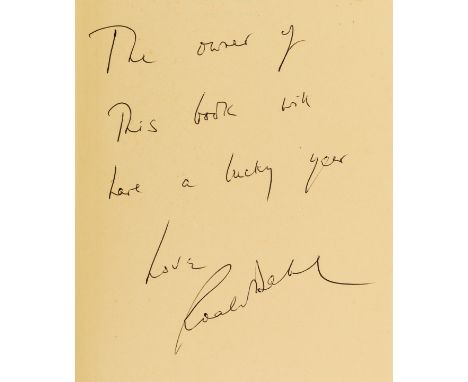 The owner of
This book will
have a lucky year
Love
Roald Dahl